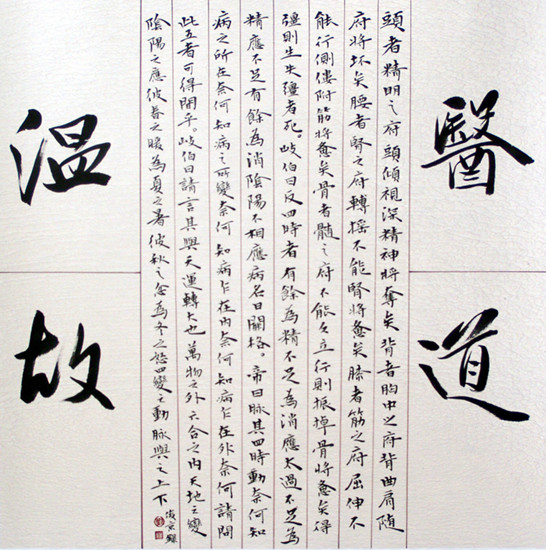 醫道
頭者精明之府頭傾視深精神將奪矣背者胸中之府背曲肩隨
府將坏矣腰者腎之府轉搖不能腎將憊矣膝者筋之府屈伸不
能行側僂附筋將憊矣骨者髓之府不能久立行則振掉骨將憊矣得
彊則生失彊者死。岐伯曰反四時者有餘為精不足為消應太過不足為
精應不足有餘為消陰陽不相應病名曰關格。帝曰脈其四時動奈何知
病之所在奈何知病之所變奈何知病乍在内奈何知病乍在外奈何請問
此五者可得聞乎。岐伯曰請言其與天運轉大也萬物之外六合之内天地之變
陰陽之應彼春之暖為夏之暑彼秋之忿為冬之怒四變之動脈與之上下
温故